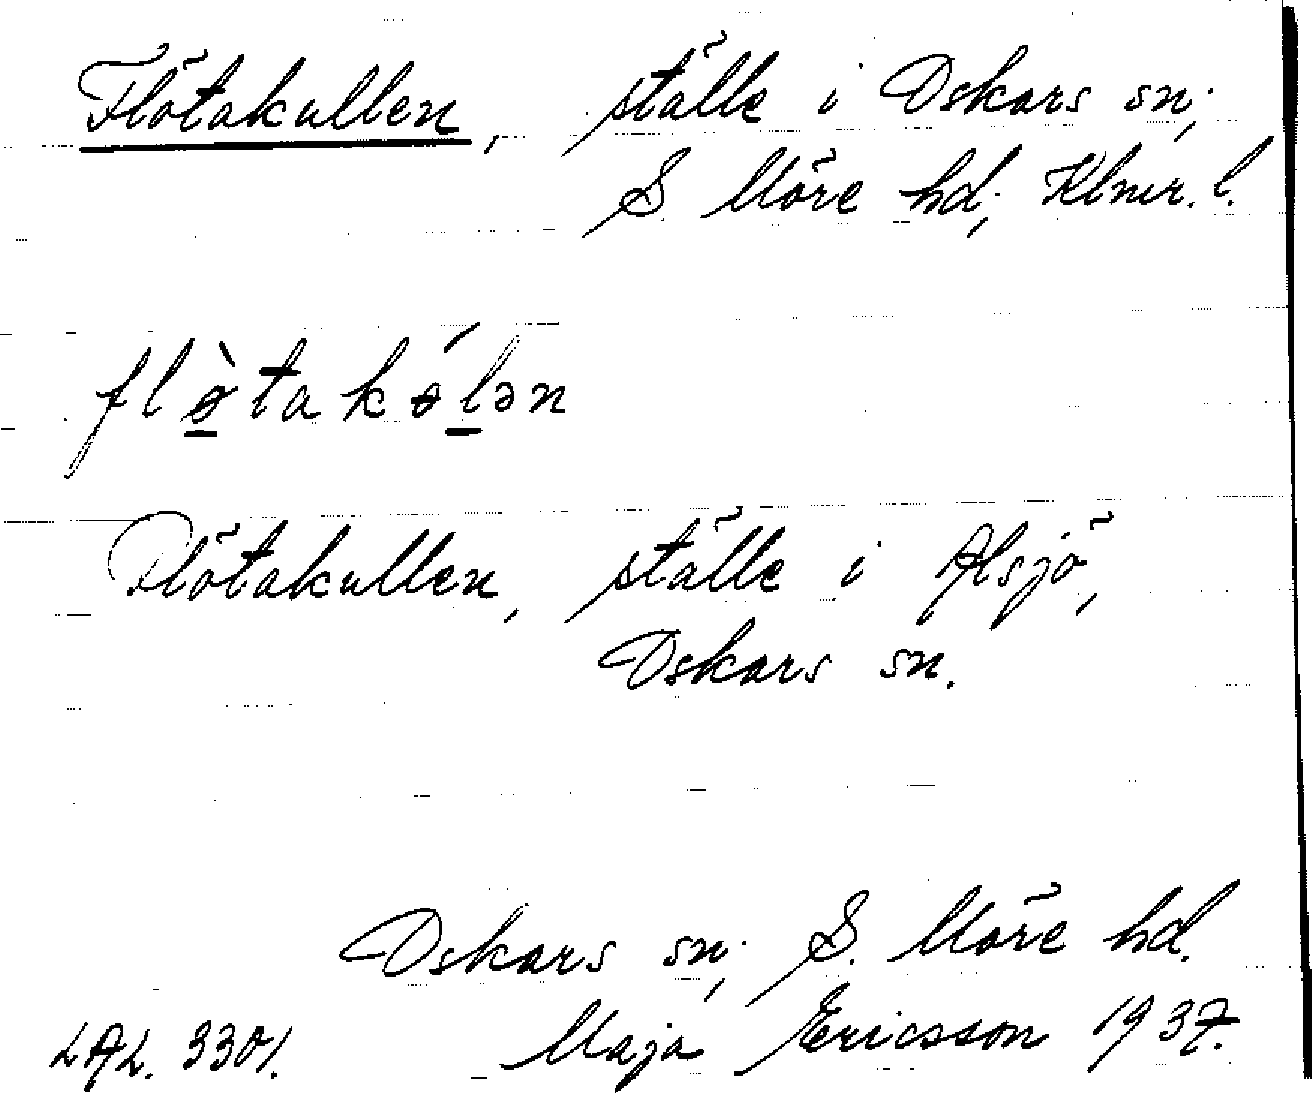 Flötakullen, ställe i Oskars sn;
S Möre hd; Klmr. l.
flø̀takǿlən
Flötakullen, ställe i Alsjö,
Oskars sn.
Oskars sn; S. Möre hd.
LAL. 3301. Maja Ericsson 1937.